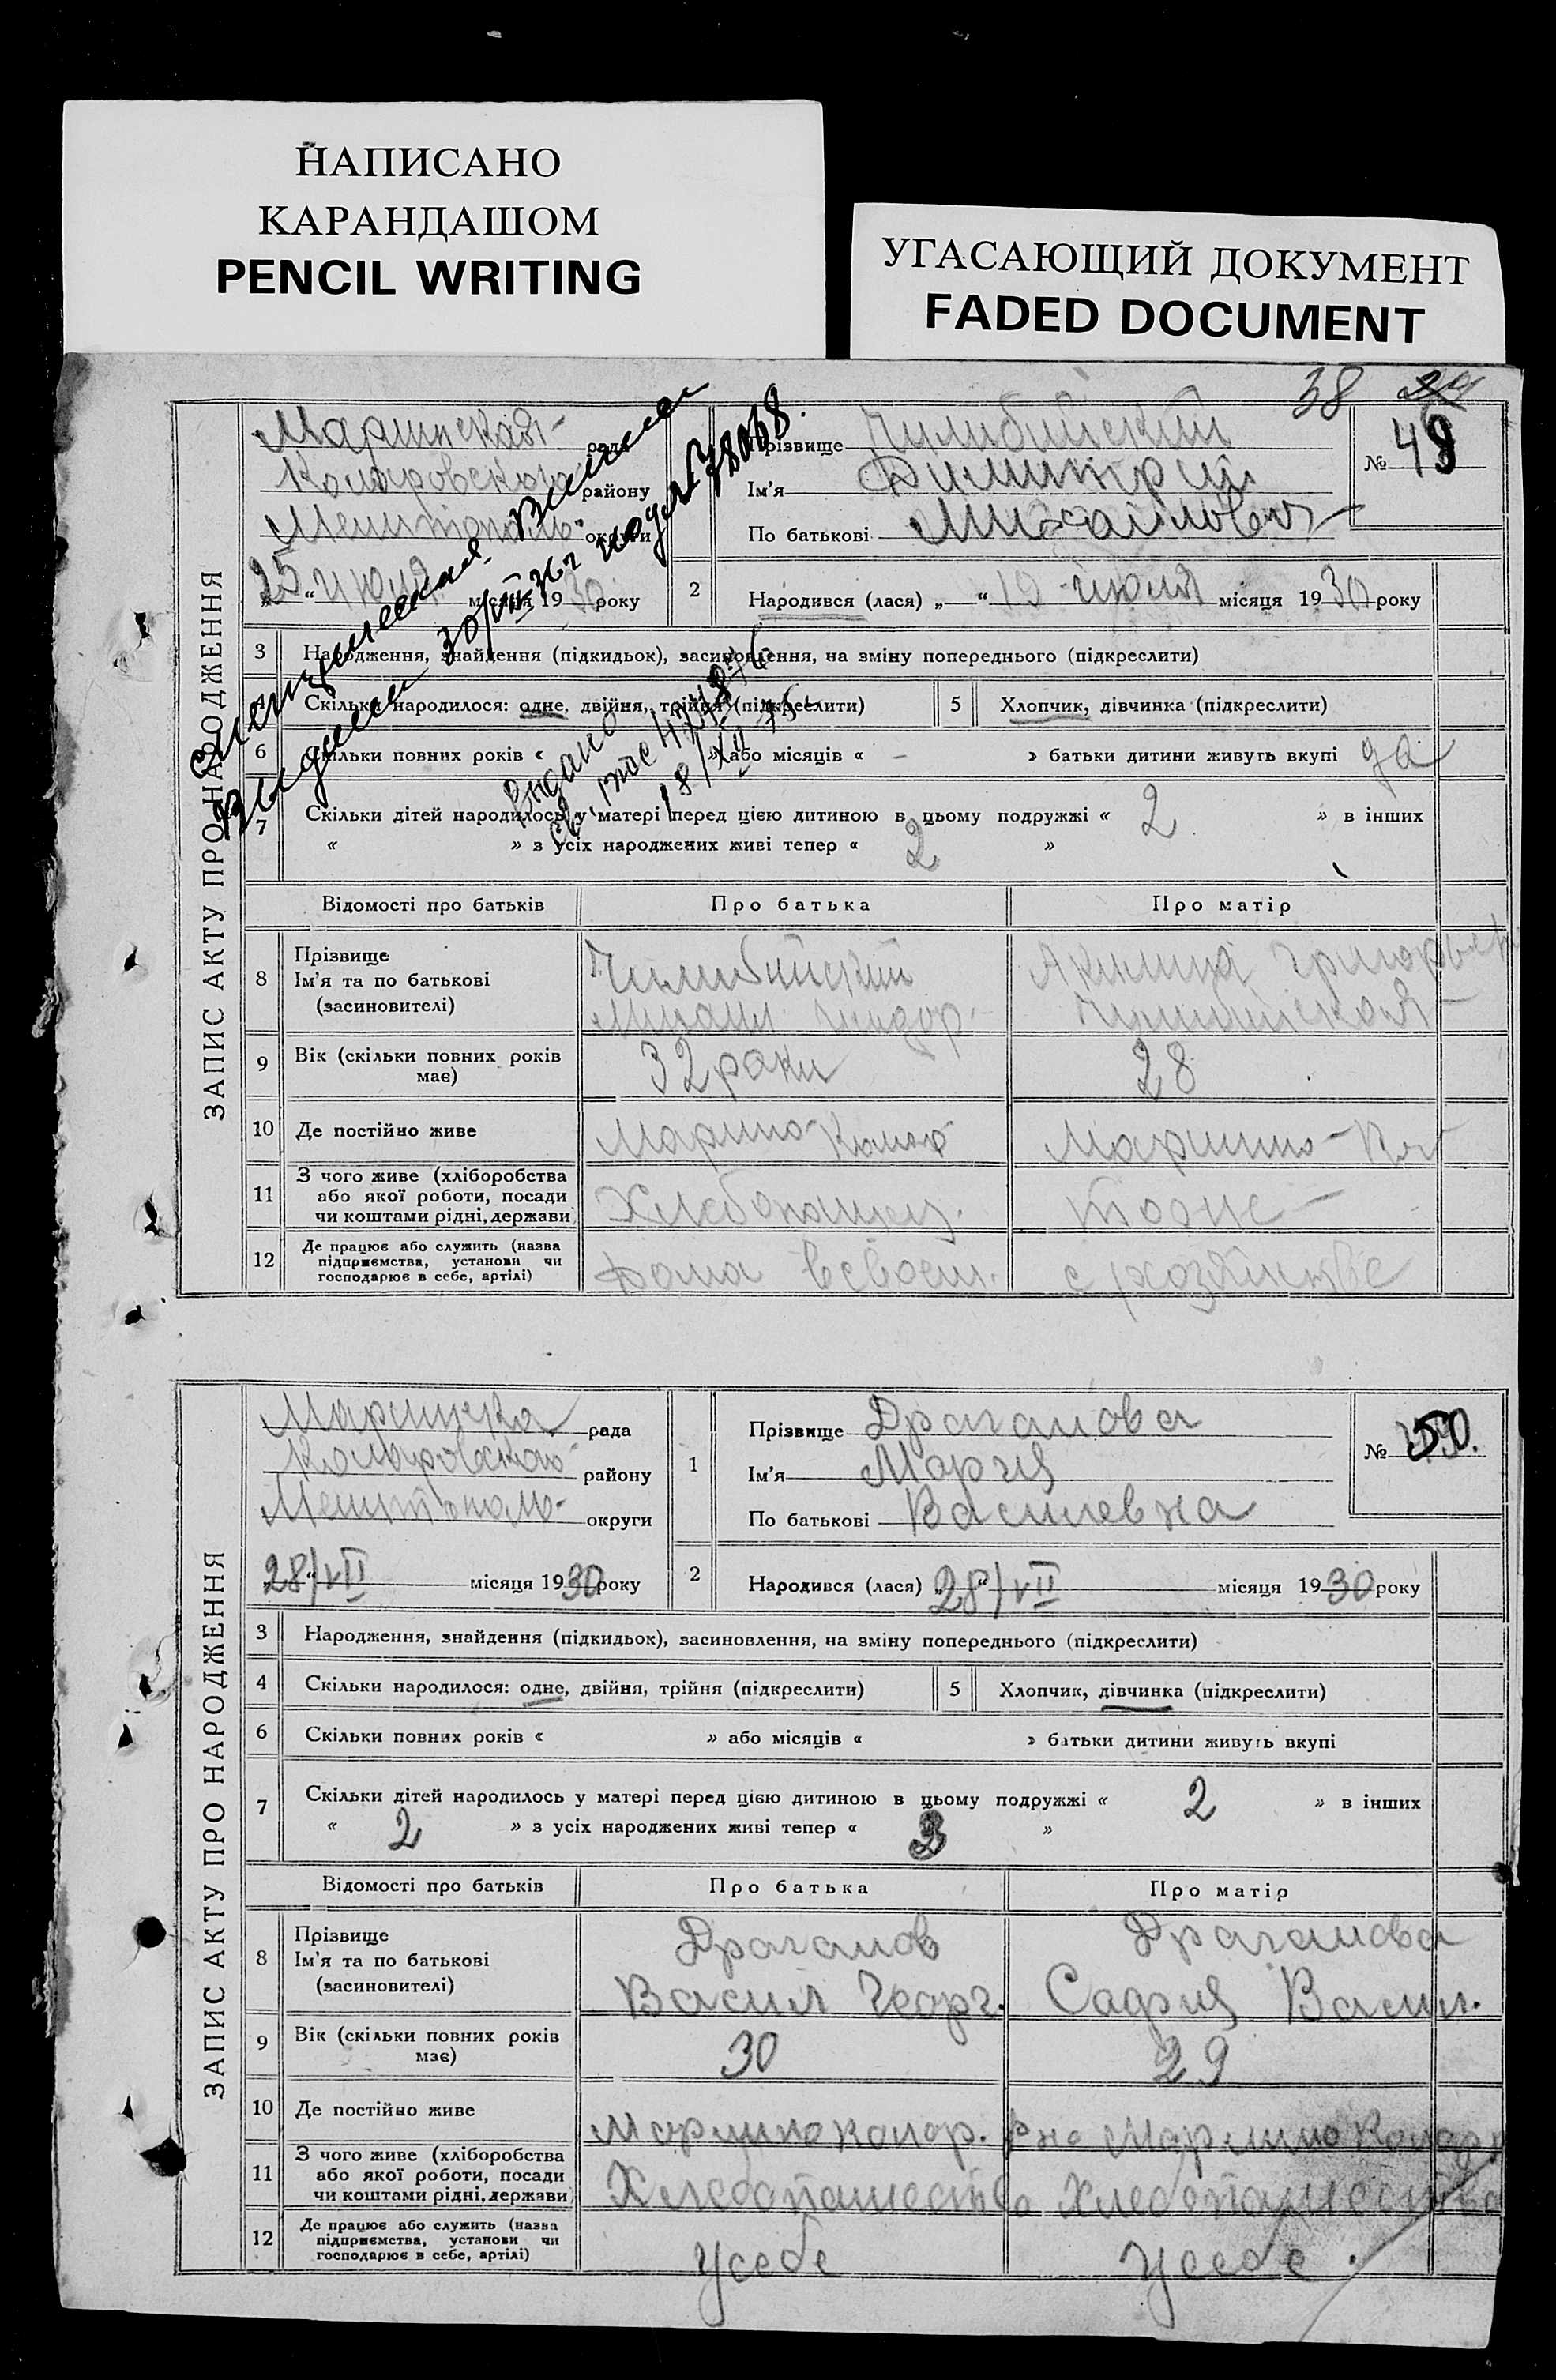 НАПИСАНО
КАРАНДАШОМ
PENCIL WRITING
УГАСАЮЩИЙ ДОКУМЕНТ
FADED DOCUMENT
38 24
ЗАПИС АКТУ ПРО НАРОДЖЕННЯ
Маринская рада
района
округи
25 июля місяця 1930 року
Прізвище Чилибийский
Ім'я Димитрий
По батькові Михайлович
№ 49
2 Народився (лася) „ “ 19 июля місяця 1930 року
3 Народження, знайдення (підкидьок), засиновлення, на зміну попереднього (підкреслити)
Скільки народилося: одне, двійня, трійня (підкреслити) 5 Хлопчик, дівчинка (підкреслити)
6 Скільки повних років « » або місяців « - » батьки дитини живуть вкупі да
7 Скільки дітей народилось у матері перед цією дитиною в цьому подружжі « 2 » в інших
« » з усіх народжених живі тепер « 2 »
Выдано 30/VIII
Видано
18/XII
Відомості про батьків Про батька Про матір
8 Прізвище
Ім'я та по батькові
(засиновителі)
Чилибийский
Михаил
Акилина Григорьев
9 Вік (скільки повних років
має)
32 роки 28
10 Де постійно живе Марино Марино-
11 З чого живе (хліборобства
або якої роботи, посади
чи коштами рідні, держави)
Хлебопашец. тоже
12 Де працює або служить (назва
підприємства, установи чи
господарює в себе, артілі)
Дома
ЗАПИС АКТУ ПРО НАРОДЖЕННЯ
рада
району
округи
28/VII місяця 1930 року
1 Прізвище Драганова
Ім'я Мария
По батькові Василевна
№ 50.
2 Народився (лася) „ “ 28/VII місяця 1930 року
3 Народження, знайдення (підкидьок), засиновлення, на зміну попереднього (підкреслити)
4 Скільки народилося: одне, двійня, трійня (підкреслити) 5 Хлопчик, дівчинка (підкреслити)
6 Скільки повних років « » або місяців « » батьки дитини живуть вкупі
7 Скільки дітей народилось у матері перед цією дитиною в цьому подружжі « 2 » в інших
« 2 » з усіх народжених живі тепер « 3 »
Відомості про батьків Про батька Про матір
8 Прізвище
Ім'я та по батькові
(засиновителі)
Драганов
Васил Георг.
Драганова
София Васил.
9 Вік (скільки повних років
має)
30 29
10 Де постійно живе
11 З чого живе (хліборобства
або якої роботи, посади
чи коштами рідні, держави)
Хлебопашество Хлебопашество
12 Де працює або служить (назва
підприємства, установи чи
господарює в себе, артілі)
Усебе Усебе.